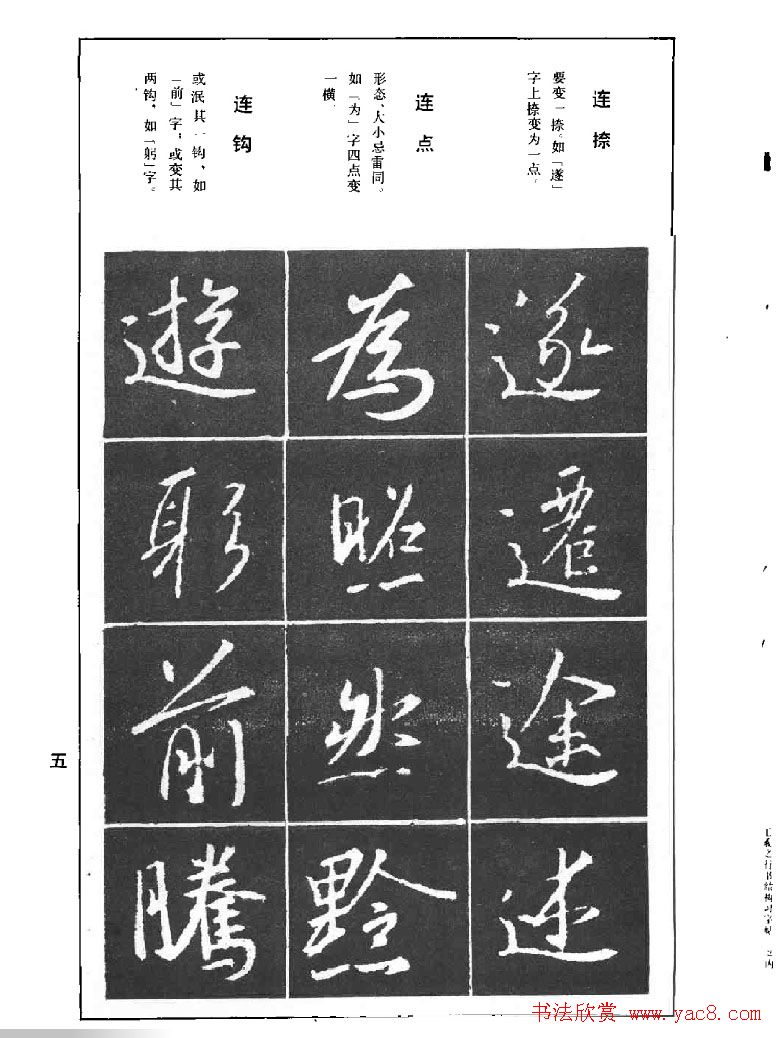 连捺
要变一捺。如「遂」
字上捺变为一点。
连点
形态、大小忌雷同。
如「为」字四点变
一横。
连钩
或泯其一钩、如
「前」字；或变其
两钩，如「躬」字。
遂
遷
途
述
為
照
然
黔
遊
躬
前
騰
五
王羲之行书结构习字帖
书法欣赏 www.yac8.com